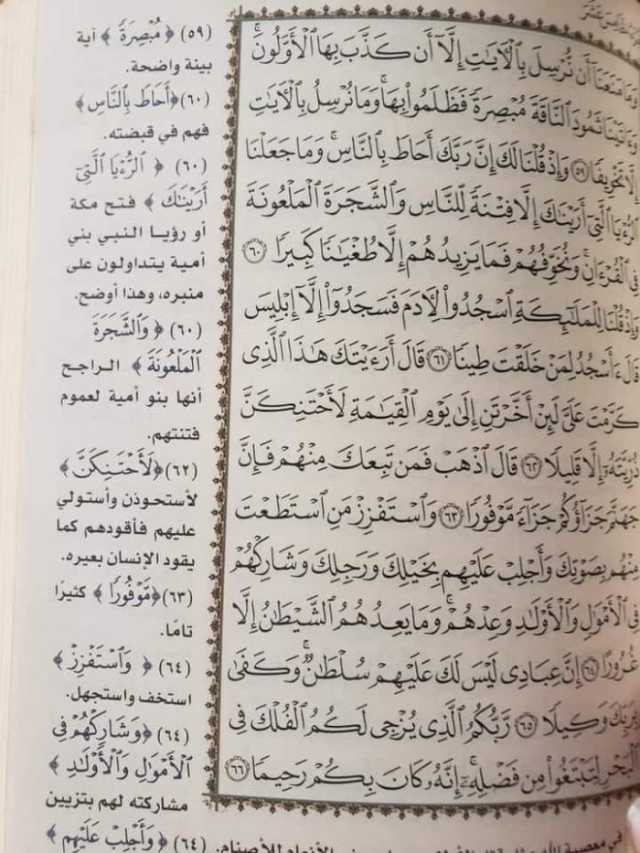 وَمَا مَنَعَنَا أَن نُّرْسِلَ بِالْآيَاتِ إِلَّا أَن كَذَّبَ بِهَا الْأَوَّلُونَ ۚ
وَءَاتَيْنَا ثَمُودَ النَّاقَةَ مُبْصِرَةً فَظَلَمُوا بِهَا ۚ وَمَا نُرْسِلُ بِالْآيَاتِ
إِلَّا تَخْوِيفًا ﴿٥٩﴾ وَإِذْ قُلْنَا لَكَ إِنَّ رَبَّكَ أَحَاطَ بِالنَّاسِ ۚ وَمَا جَعَلْنَا
الرُّءْيَا الَّتِي أَرَيْنَاكَ إِلَّا فِتْنَةً لِّلنَّاسِ وَالشَّجَرَةَ الْمَلْعُونَةَ
فِي الْقُرْءَانِ ۚ وَنُخَوِّفُهُمْ فَمَا يَزِيدُهُمْ إِلَّا طُغْيَانًا كَبِيرًا ﴿٦٠﴾
وَإِذْ قُلْنَا لِلْمَلَائِكَةِ اسْجُدُوا لِآدَمَ فَسَجَدُوا إِلَّا إِبْلِيسَ
قَالَ ءَأَسْجُدُ لِمَنْ خَلَقْتَ طِينًا ﴿٦١﴾ قَالَ أَرَءَيْتَكَ هَٰذَا الَّذِي
كَرَّمْتَ عَلَيَّ لَئِنْ أَخَّرْتَنِ إِلَىٰ يَوْمِ الْقِيَامَةِ لَأَحْتَنِكَنَّ
ذُرِّيَّتَهُ إِلَّا قَلِيلًا ﴿٦٢﴾ قَالَ اذْهَبْ فَمَن تَبِعَكَ مِنْهُمْ فَإِنَّ
جَهَنَّمَ جَزَاؤُكُمْ جَزَاءً مَّوْفُورًا ﴿٦٣﴾ وَاسْتَفْزِزْ مَنِ اسْتَطَعْتَ
مِنْهُم بِصَوْتِكَ وَأَجْلِبْ عَلَيْهِم بِخَيْلِكَ وَرَجِلِكَ وَشَارِكْهُمْ
فِي الْأَمْوَالِ وَالْأَوْلَادِ وَعِدْهُمْ ۚ وَمَا يَعِدُهُمُ الشَّيْطَانُ إِلَّا
غُرُورًا ﴿٦٤﴾ إِنَّ عِبَادِي لَيْسَ لَكَ عَلَيْهِمْ سُلْطَانٌ ۚ وَكَفَىٰ
بِرَبِّكَ وَكِيلًا ﴿٦٥﴾ رَّبُّكُمُ الَّذِي يُزْجِي لَكُمُ الْفُلْكَ فِي
الْبَحْرِ لِتَبْتَغُوا مِن فَضْلِهِ ۚ إِنَّهُ كَانَ بِكُمْ رَحِيمًا ﴿٦٦﴾
(٥٩) ﴿مُبْصِرَةً﴾ آية
بينة واضحة.
(٦٠) ﴿أَحَاطَ بِالنَّاسِ﴾
فهم في قبضته.
(٦٠) ﴿الرُّءْيَا الَّتِي
أَرَيْنَاكَ﴾ فتح مكة
أو رؤيا النبي بني
أمية يتداولون على
منبره، وهذا أوضح.
(٦٠) ﴿وَالشَّجَرَةَ
الْمَلْعُونَةَ﴾ الراجح
أنها بنو أمية لعموم
فتنتهم.
(٦٢) ﴿لَأَحْتَنِكَنَّ﴾
لأستحوذن وأستولي
عليهم فأقودهم كما
يقود الإنسان بعيره.
(٦٣) ﴿مَوْفُورًا﴾ كثيرًا
تامًا.
(٦٤) ﴿وَاسْتَفْزِزْ﴾
استخف واستجهل.
(٦٤) ﴿وَشَارِكْهُمْ فِي
الْأَمْوَالِ وَالْأَوْلَادِ﴾
مشاركته لهم بتزيين
(٦٤) ﴿وَأَجْلِبْ عَلَيْهِم﴾